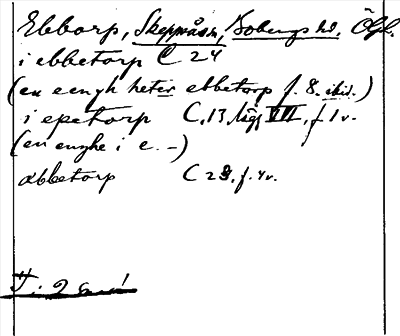 Ebborp, Skeppsåsn, Bobergs hd, Ögl.
i ebbetorp C 24
(en eengh heter ebbetorp f. 8. ibid.)
i epetorp C. 13 lägg III, f 1v.
(en enghe i e. –)
abbetorp C 28, f. 4v.